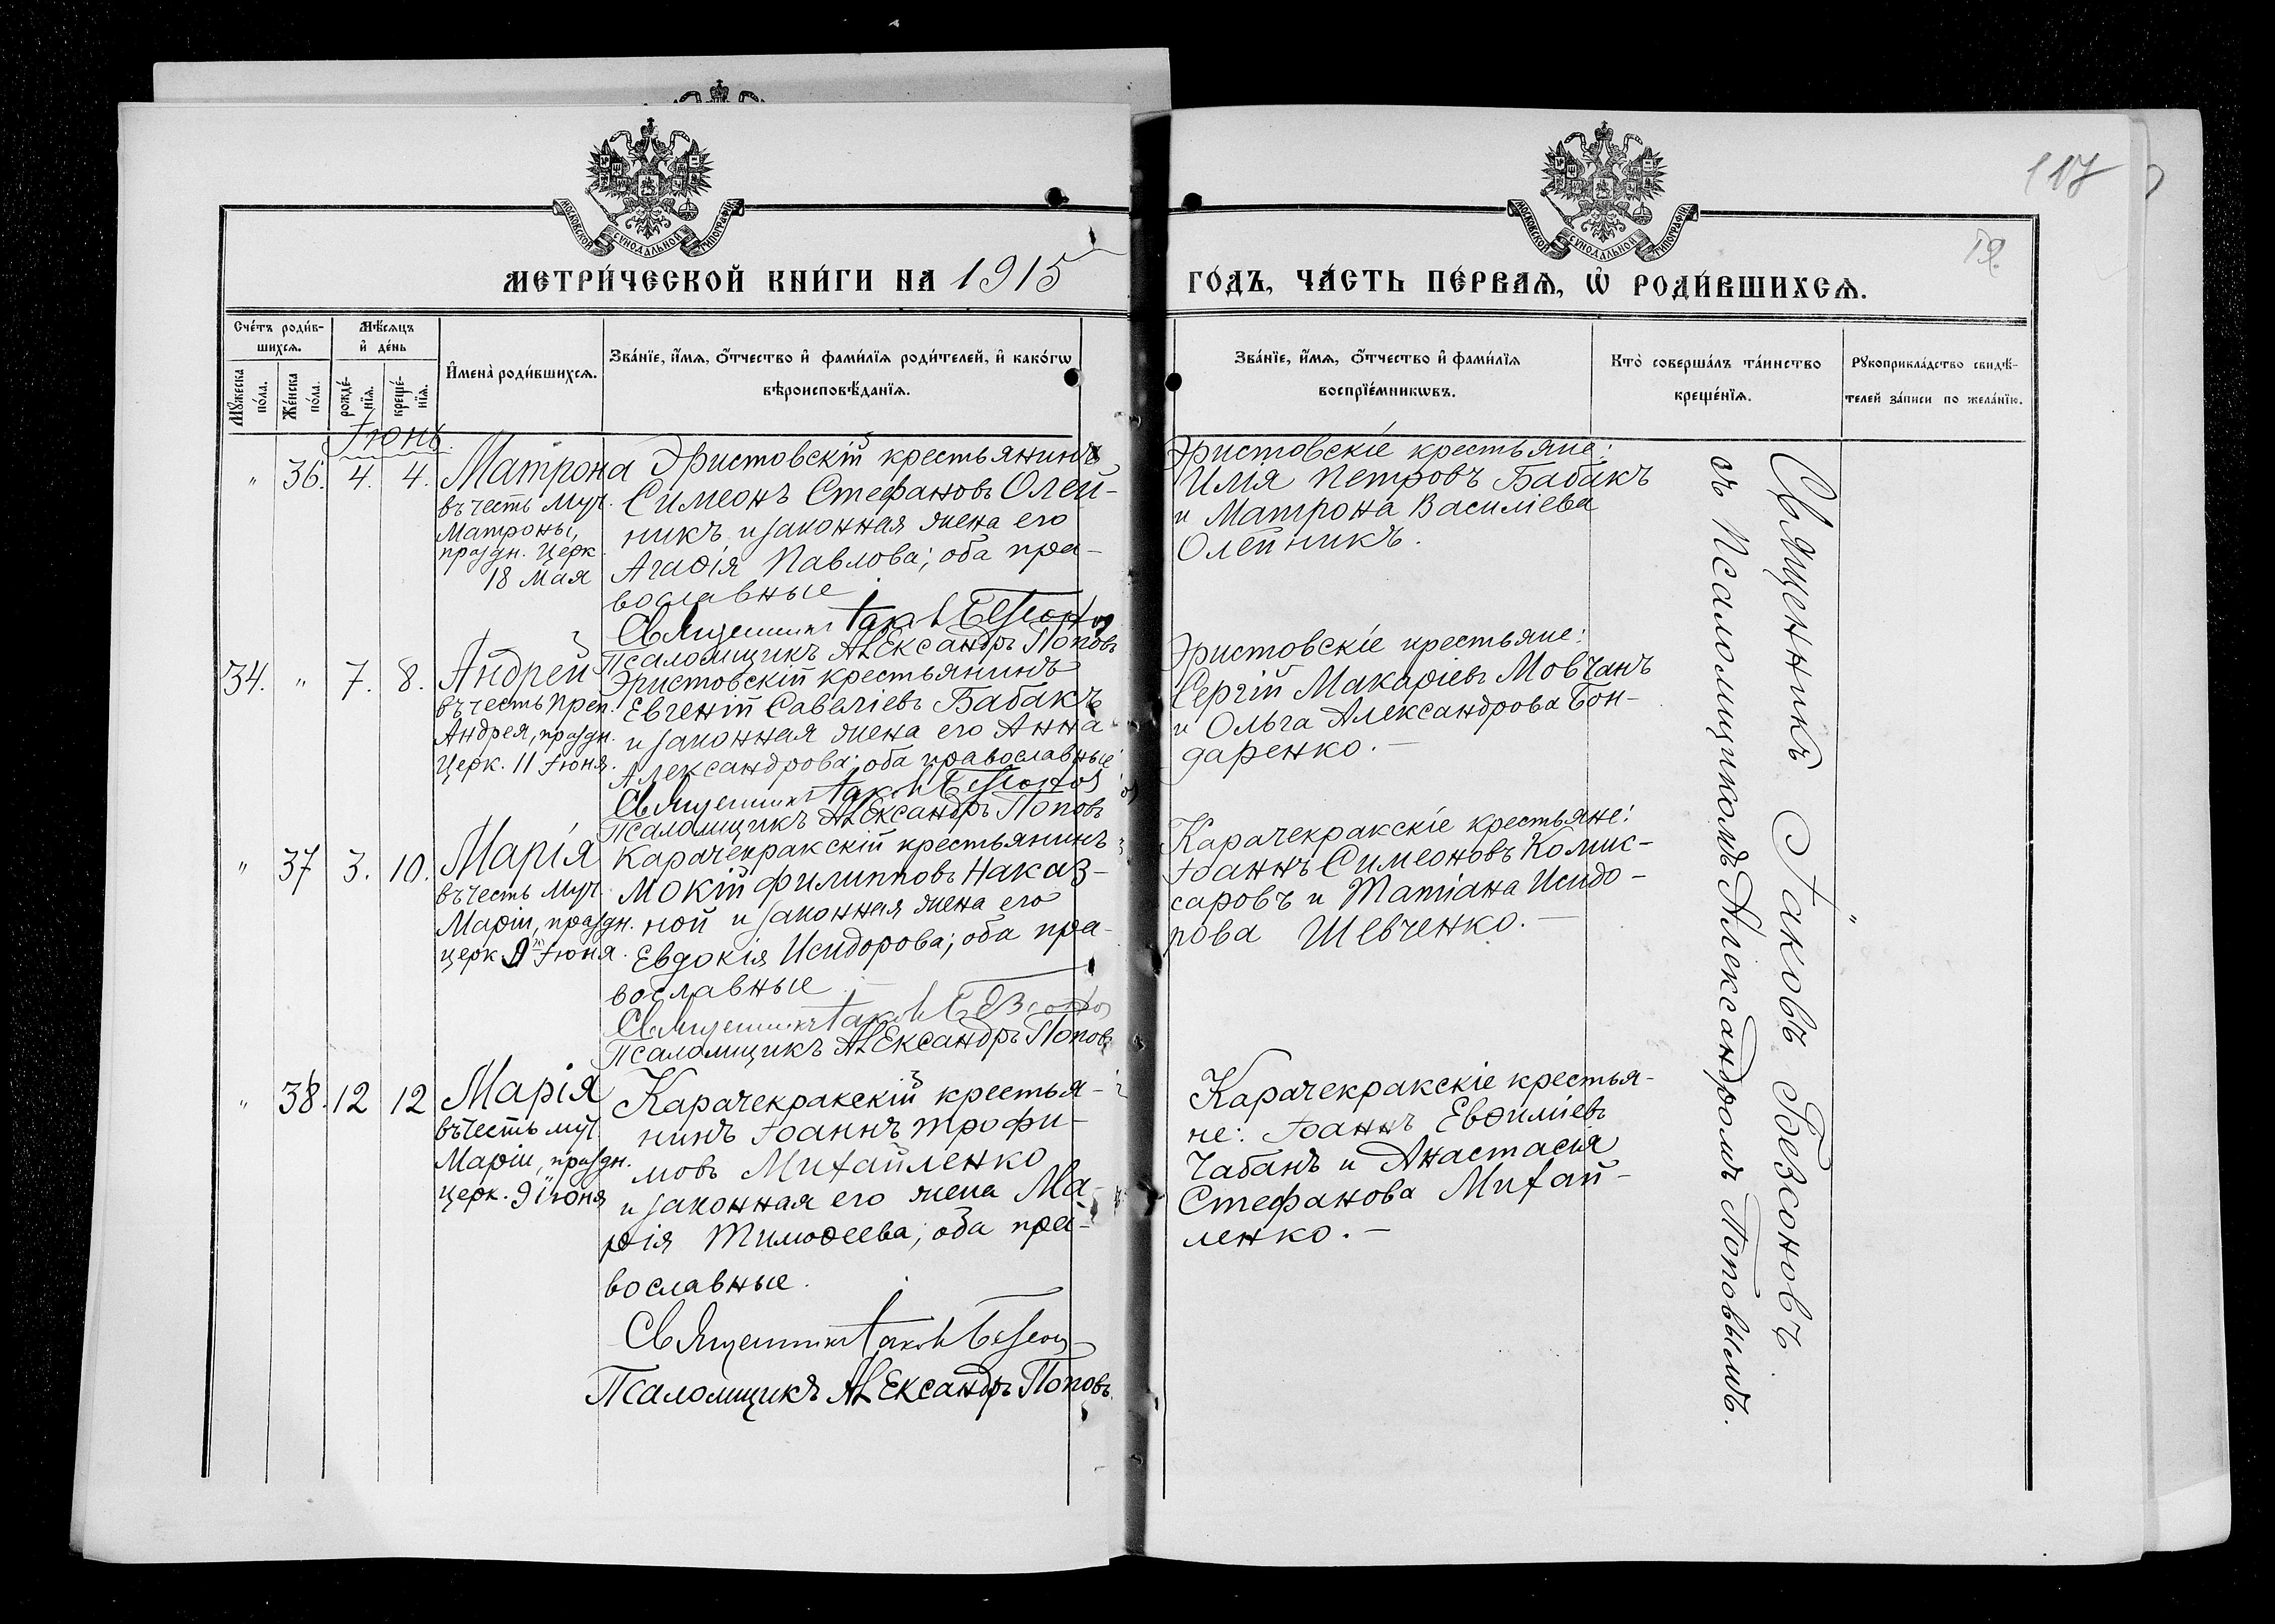 117
79
МОСКОВСКОЙ СУНОДАЛЬНОЙ ТИПОГРАФІИ
МОСКОВСКОЙ СУНОДАЛЬНОЙ ТИПОГРАФІИ
МЕТРИ́ЧЕСКОЙ КНИ́ГИ НА 1915 ГО́ДЪ, ЧА́СТЬ ПЕ́РВАѦ, Ѡ҆ РОДИ́ВШИХСѦ.
Сче́тъ роди́в-
шихсѧ.
Мꙋ́жеска по́ла.
Же́нска по́ла.
Мѣ́сѧцъ
и҆ де́нь
рожде́-
нїѧ.
креще́-
нїѧ.
И҆мена̀ роди́вшихсѧ.
Зва́нїе, и҆́мѧ, ѻ҆́тчество и҆ фами́лїѧ роди́телей, и҆ како́гѡ
вѣроисповѣ́данїѧ.
Зва́нїе, и҆́мѧ, ѻ҆́тчество и҆ фами́лїѧ
воспрїе́мникѡвъ.
Кто̀ соверша́лъ та́инство
креще́нїѧ.
Рꙋкоприкла́дство свидѣ́-
телей за́писи по жела́нїю.
Іюнь.
" 36. 4. 4.
Матрона
въ честь муч.
Матроны,
праздн. церк.
18 мая
Эристовскій крестьянинъ
Симеонъ Стефановъ Олей-
никъ и законная жена его
Агаѳія Павлова; оба пра-
вославные
Священникъ Іаковъ Безсоновъ
Псаломщикъ Александръ Поповъ
Эристовскіе крестьяне:
Илія Петровъ Бабакъ
и Матрона Василіева
Олейникъ.
34. " 7. 8.
Андрей
въ честь преп.
Андрея, праздн.
церк. 11 Іюня.
Эристовскій крестьянинъ
Евгеній Савеліевъ Бабакъ
и законная жена его Анна
Александрова; оба православные
Священникъ Іаковъ Безсоновъ
Псаломщикъ Александръ Поповъ
Эристовскіе крестьяне:
Сергій Макаріевъ Мовчанъ
и Ольга Александрова Бон-
даренко.—
" 37 3. 10.
Марія
въ честь муч.
Маріи, праздн.
церк. 9 Іюня.
Карачекракскій крестьянинъ
Мокій Филипповъ Наказ-
ной и законная жена его
Евдокія Исидорова; оба пра-
вославные.—
Священникъ Іаковъ Безсоновъ
Псаломщикъ Александръ Поповъ
Карачекракскіе крестьяне:
Іоаннъ Симеоновъ Комис-
саровъ и Татіана Исидо-
рова Шевченко.—
" 38. 12 12
Марія
въ честь муч.
Маріи, праздн.
церк. 9 іюня
Карачекракскій крестья-
нинъ Іоаннъ Трофи-
мовъ Михайленко
и законная его жена Ма-
рія Тимоѳеева; оба пра-
вославные.
Священникъ Іаковъ Безсоновъ
Псаломщикъ Александръ Поповъ.
Карачекракскіе крестья-
не: Іоаннъ Евѳиміевъ
Чабанъ и Анастасія
Стефанова Михай-
ленко.—
Священникъ Іаковъ Безсоновъ
съ Псаломщикомъ Александромъ Поповымъ.